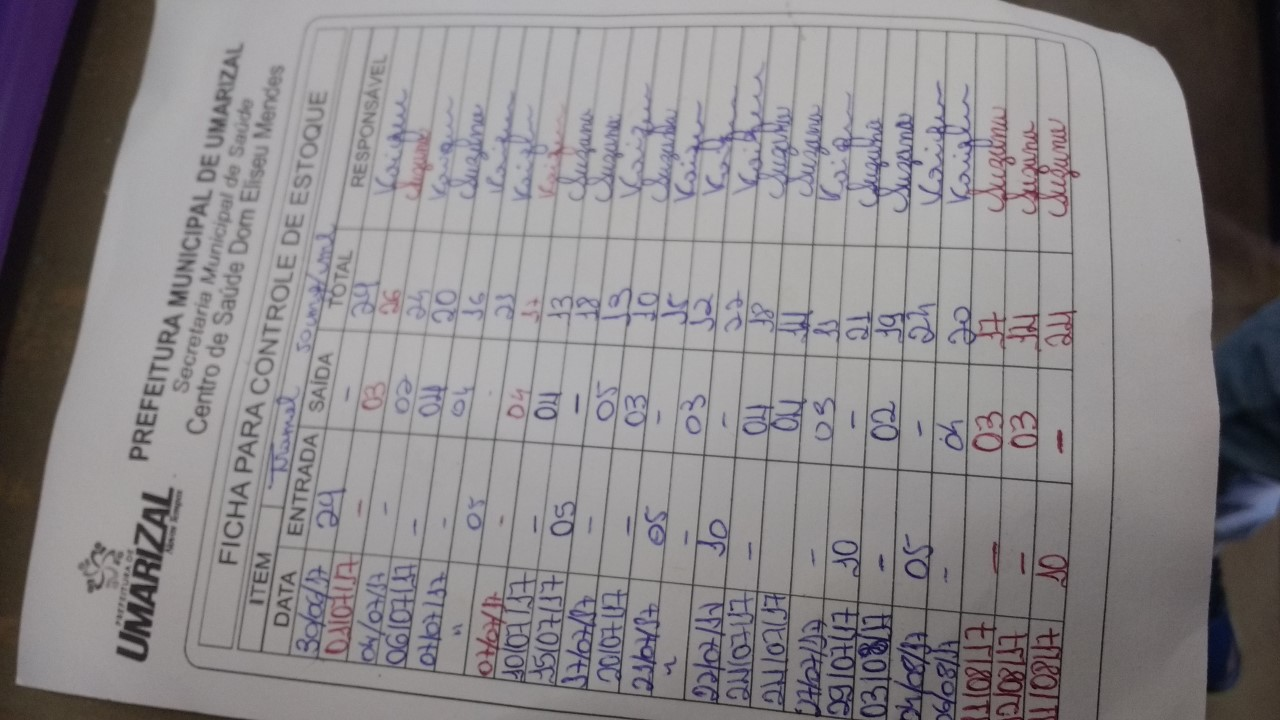 PREFEITURA DE
UMARIZAL
PREFEITURA MUNICIPAL DE UMARIZAL
Secretaria Municipal de Saúde
Centro de Saúde Dom Eliseu Mendes
FICHA PARA CONTROLE DE ESTOQUE
ITEM
DATA ENTRADA SAÍDA TOTAL RESPONSÁVEL
30/06/17 29 - 29 Kaique
02/07/17 - 03 26 Suzana
04/07/17 - 02 24 Kaique
06/07/17 - 04 20 Suzana
07/07/17 - 04 16 Kaique
" 05 - 21 Kaique
07/07/17 - 04 17 Kaique
10/07/17 - 04 13 Suzana
15/07/17 05 - 18 Suzana
17/07/17 - 05 13 Kaique
20/07/17 - 03 10 Suzana
21/07/17 05 - 15 Kaique
" - 03 12 Kaique
22/07/17 10 - 22 Kaique
21/07/17 - 04 18 Suzana
21/07/17 04 Suzana
27/07/17 - 03 11 Kaique
29/07/17 10 - 21 Suzana
03/08/17 - 02 19 Suzana
04/08/17 05 - 24 Kaique
06/08/17 - 04 20 Kaique
11/08/17 - 03 17 Suzana
2/08/17 - 03 14 Suzana
1/08/17 10 - 24 Suzana